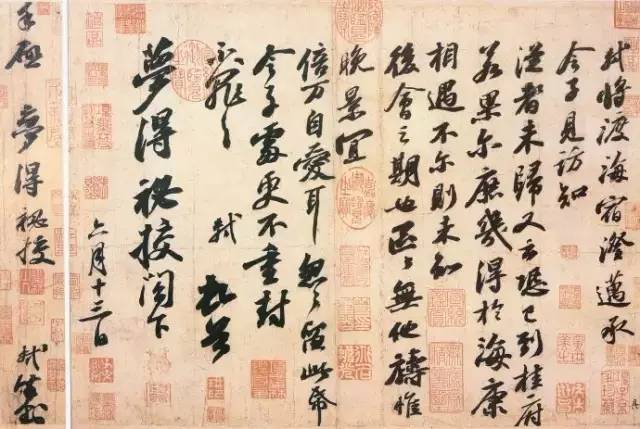 軾將渡海宿澄邁承
令子見訪知
從者未歸又云恐已到桂府
若果尔庶幾得於海康
相遇不尔則未知
後會之期也區々無他禱惟
晚景宜
倍万自愛耳怱々留此帋
令子處更不重封
不罪々
軾 頓首
夢得祕挍閤下
六月十三日
手啓 夢得祕挍 軾封